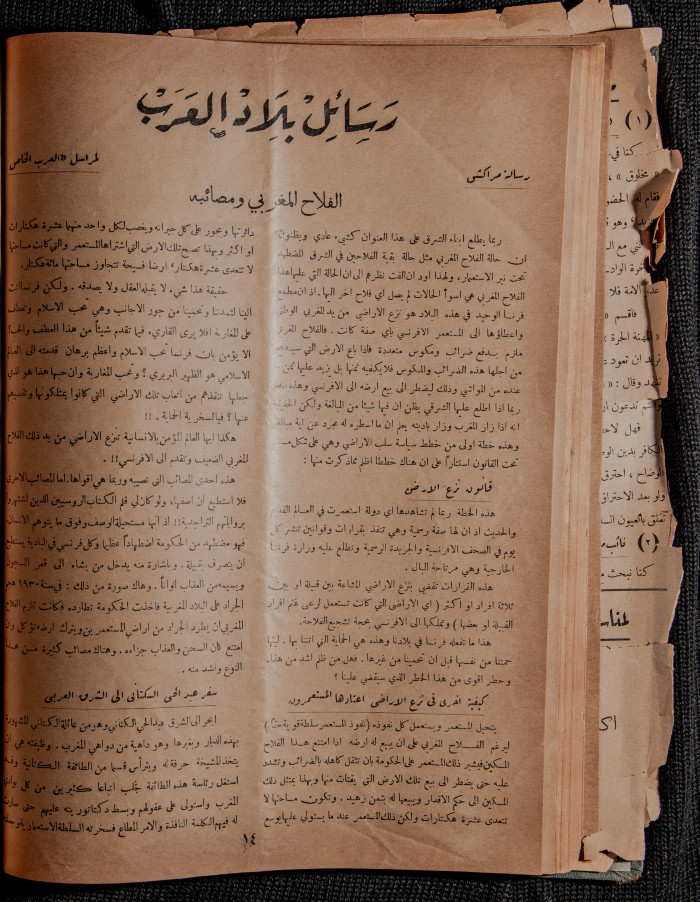 رسائل بلاد العرب
رسالة مراكش
لمراسل «العرب» الخاص
الفلاح المغربي ومصائبه
ربما يطلع ابناء الشرق على هذا العنوان كشيء عادي ويظنون
ان حالة الفلاح المغربي مثل حالة بقية الفلاحين في الشرق المضطهد
تحت نير الاستعمار، ولهذا اود ان الفت نظرهم الى ان الحالة التي عليها هذا
الفلاح المغربي هي اسوأ الحالات لم يصل اي فلاح اخر اليها. اذ ان مطمع
فرنسا الوحيد في هذه البلاد هو نزع الاراضي من يد المغربي الوطني
واعطاؤها الى المستعمر الافرنسي بأي صفة كانت. فالفلاح المغربي
ملزم بدفع ضرائب ومكوس متعددة فاذا باع الارض التي سيدفع
من اجلها هذه الضرائب والمكوس فلا يكفيه ثمنها بل يزيد عليها ثمن
عدده من المواشي وذلك ليضطر الى بيع ارضه الى الافرنسي وهذه
ربما اذا اطلع عليها الشرقي يظن ان فيها شيئا من المبالغة ولكن الحقيقة
انه اذا زار المغرب وزار باديته يعلم ان ما اسطره له مجرد عن اية مبالغة
وهذه خطة اولى من خطط سياسة سلب الاراضي وهي على شكل
تحت القانون استتاراً على ان هناك خططا اظلم مما ذكرت منها:
قانون نزع الارض
هذه الخطة ربما لم تشاهدها اي دولة استعمرت في العالم القديم
والحديث اذ ان لها صفة رسمية وهي تنفذ بقرارات وقوانين تنشر كل
يوم في الصحف الافرنسية والجريدة الرسمية وتطلع عليه وزارة فرنسا
الخارجية وهي مرتاحة البال.
هذه القرارات تقضي بنزع الاراضي المشاعة بين قبيلة او بين
ثلاثة افراد او اكثر (اي الاراضي التي كانت تستعمل لرعي غنم افراد
القبيلة او بعضها) وتمليكها الى الافرنسي بحجة تشجيع الفلاحة.
هذا ما تفعله فرنسا في بلادنا وهذه هي الحماية التي اتتنا بها. ليتها
حمتنا من نفسها قبل ان تحمينا من غيرها. فهل من ظلم اشد من هذا.
وخطر اقوى من هذا الخطر الذي سيقضي علينا؟
كيفية اخرى في نزع الاراضي اعتادها المستعمرون
يتحيل المستعمر ويستعمل كل نفوذه (نفوذ المستعمر سلطة قوية حقا)
ليرغم الفلاح المغربي على ان يبيع له ارضه اذا امتنع هذا الفلاح
المسكين فيشير ذلك المستعمر على الحكومة بان تثقل كاهله بالضرائب وتشدد
عليه حتى يضطر الى بيع تلك الارض التي يقتات منها وبهذا يمتثل ذلك
المسكين الى حكم الاقدار ويبيعها له بثمن زهيد. وتكون مساحتها لا
تتعدى عشرة هكتارات ولكن ذلك المستعمر عند ما يستولي عليها يوسع
دائرتها ويجور على كل جيرانه ويغصب لكل واحد منهما عشرة هكتارات
او اكثر وبهذا تصبح تلك الارض التي اشتراها المستعمر والتي كانت مساحتها
لا تتعدى عشرة هكتار، ارضا فسيحة تتجاوز مساحتها مائة هكتار.
حقيقة هذا شيء لا يقبله العقل ولا يصدقه. ولكن فرنسا اتت
الينا لتمدننا وتحمينا من جور الاجانب وهي تحب الاسلام وتعطف
على المغاربة افلا يرى القاريء فيما تقدم شيئاً من هذا العطف والحب؟
الا يؤمن بان فرنسا تحب الاسلام واعظم برهان قدمته الى العالم
الاسلامي هو الظهير البربري؟ وتحب المغاربة وان حبها هذا هو الذي
جعلها تنقذهم من اتعاب تلك الاراضي التي كانوا يمتلكونها
عنها؟ فيا لسخرية الحماية.!!
هكذا ايها العالم المؤمن بالانسانية تنزع الاراضي من يد ذلك الفلاح
المغربي الضعيف وتقدم الى الافرنسي!!.
هذه احدى المصائب التي تصيبه وربما هي اقواها. اما المصائب الاخرى
فلا استطيع ان اصفها، ولو كان لي قلم الكتاب الروسيين الذين اشتهروا
برواياتهم التراجيدية!! اذ انها مستحيلة الوصف وفوق ما يتوهم الانسان
فهو مضطهد من الحكومة اضطهاداً عظيما وكل فرنسي في البادية يستطيع
ان يتصرف بقبيلة. وباشارة منه يدخل من يشاء الى قعر السجون
ويسيمه من العذاب الواناً. وهاك صورة من ذلك: في سنة ١٩٣٠ هجم
الجراد على البلاد المغربية فاخذت الحكومة تطارده فكانت تلزم الفلاح
المغربي ان يطرد الجراد من اراضي المستعمرين ويترك ارضه تؤكل وان
امتنع كان السجن والعذاب جزاءه. وهناك مصائب كثيرة من هذا
النوع واشد منه.
سفر عبد الحي الكتاني الى الشرق العربي
ابحر الى الشرق عبد الحي الكتاني وهو من عائلة الكتاني المشهورة
بهذه الديار وبغيرها وهو داهية من دواهي المغرب. وظيفته هي ان
يتخذ المشيخة حرفة له ويترأس قسما من الطائفة الكتانية وقد
استغل رئاسة هذه الطائفة بجلب اتباعا كثيرين من كل بوادي
المغرب واستولى على عقولهم وبسط دكتاتوريته عليهم حتى صارت
له فيهم الكلمة النافذة والامر المطاع فسخرته السلطة الاستعمارية
١٤
(١)
كنا في
« مخلوق »
فاقسم «
(٢) نائب
كنا نبحث